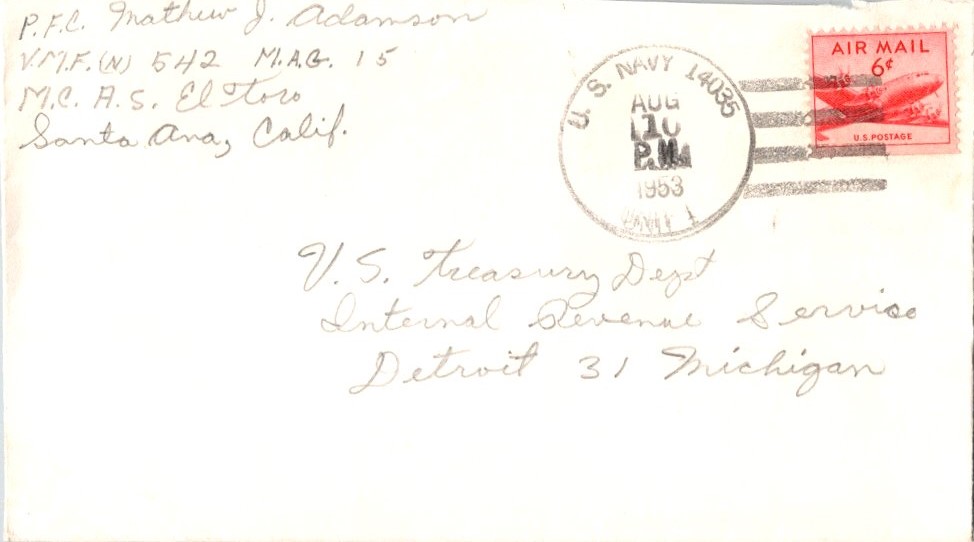 P.F.C. Mathew J. Adamson
V.M.F.(N) 542 M.A.G. 15
M.C.A.S. El Toro
Santa Ana, Calif.
U. S. NAVY 14035
AUG
10
P.M.
1953
UNIT 1
AIR MAIL
6¢
U.S. POSTAGE
U.S. Treasury Dept
Internal Revenue Service
Detroit 31 Michigan